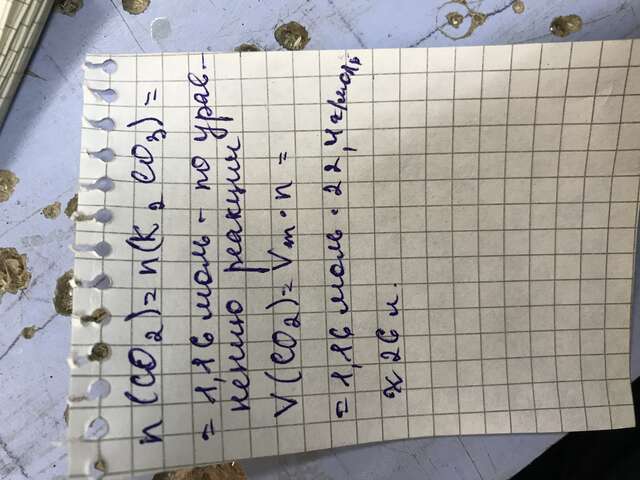 n(CO₂)= n(K₂CO₃)=
= 1,16 моль - по урав-
нению реакции
V(CO₂)= Vm·n =
= 1,16 моль · 22,4 г/моль
≈ 26 л.